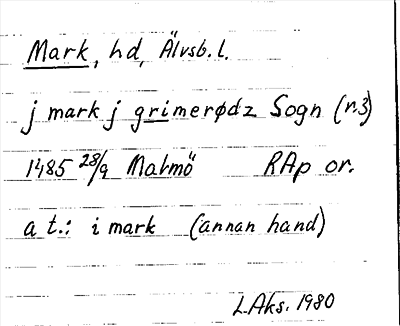 Mark, hd, Älvsb. l.
j mark j grimerødz Sogn (r.3)
1485 28/9 Malmö RAp or.
a t.: i mark (annan hand)
L.Aks. 1980